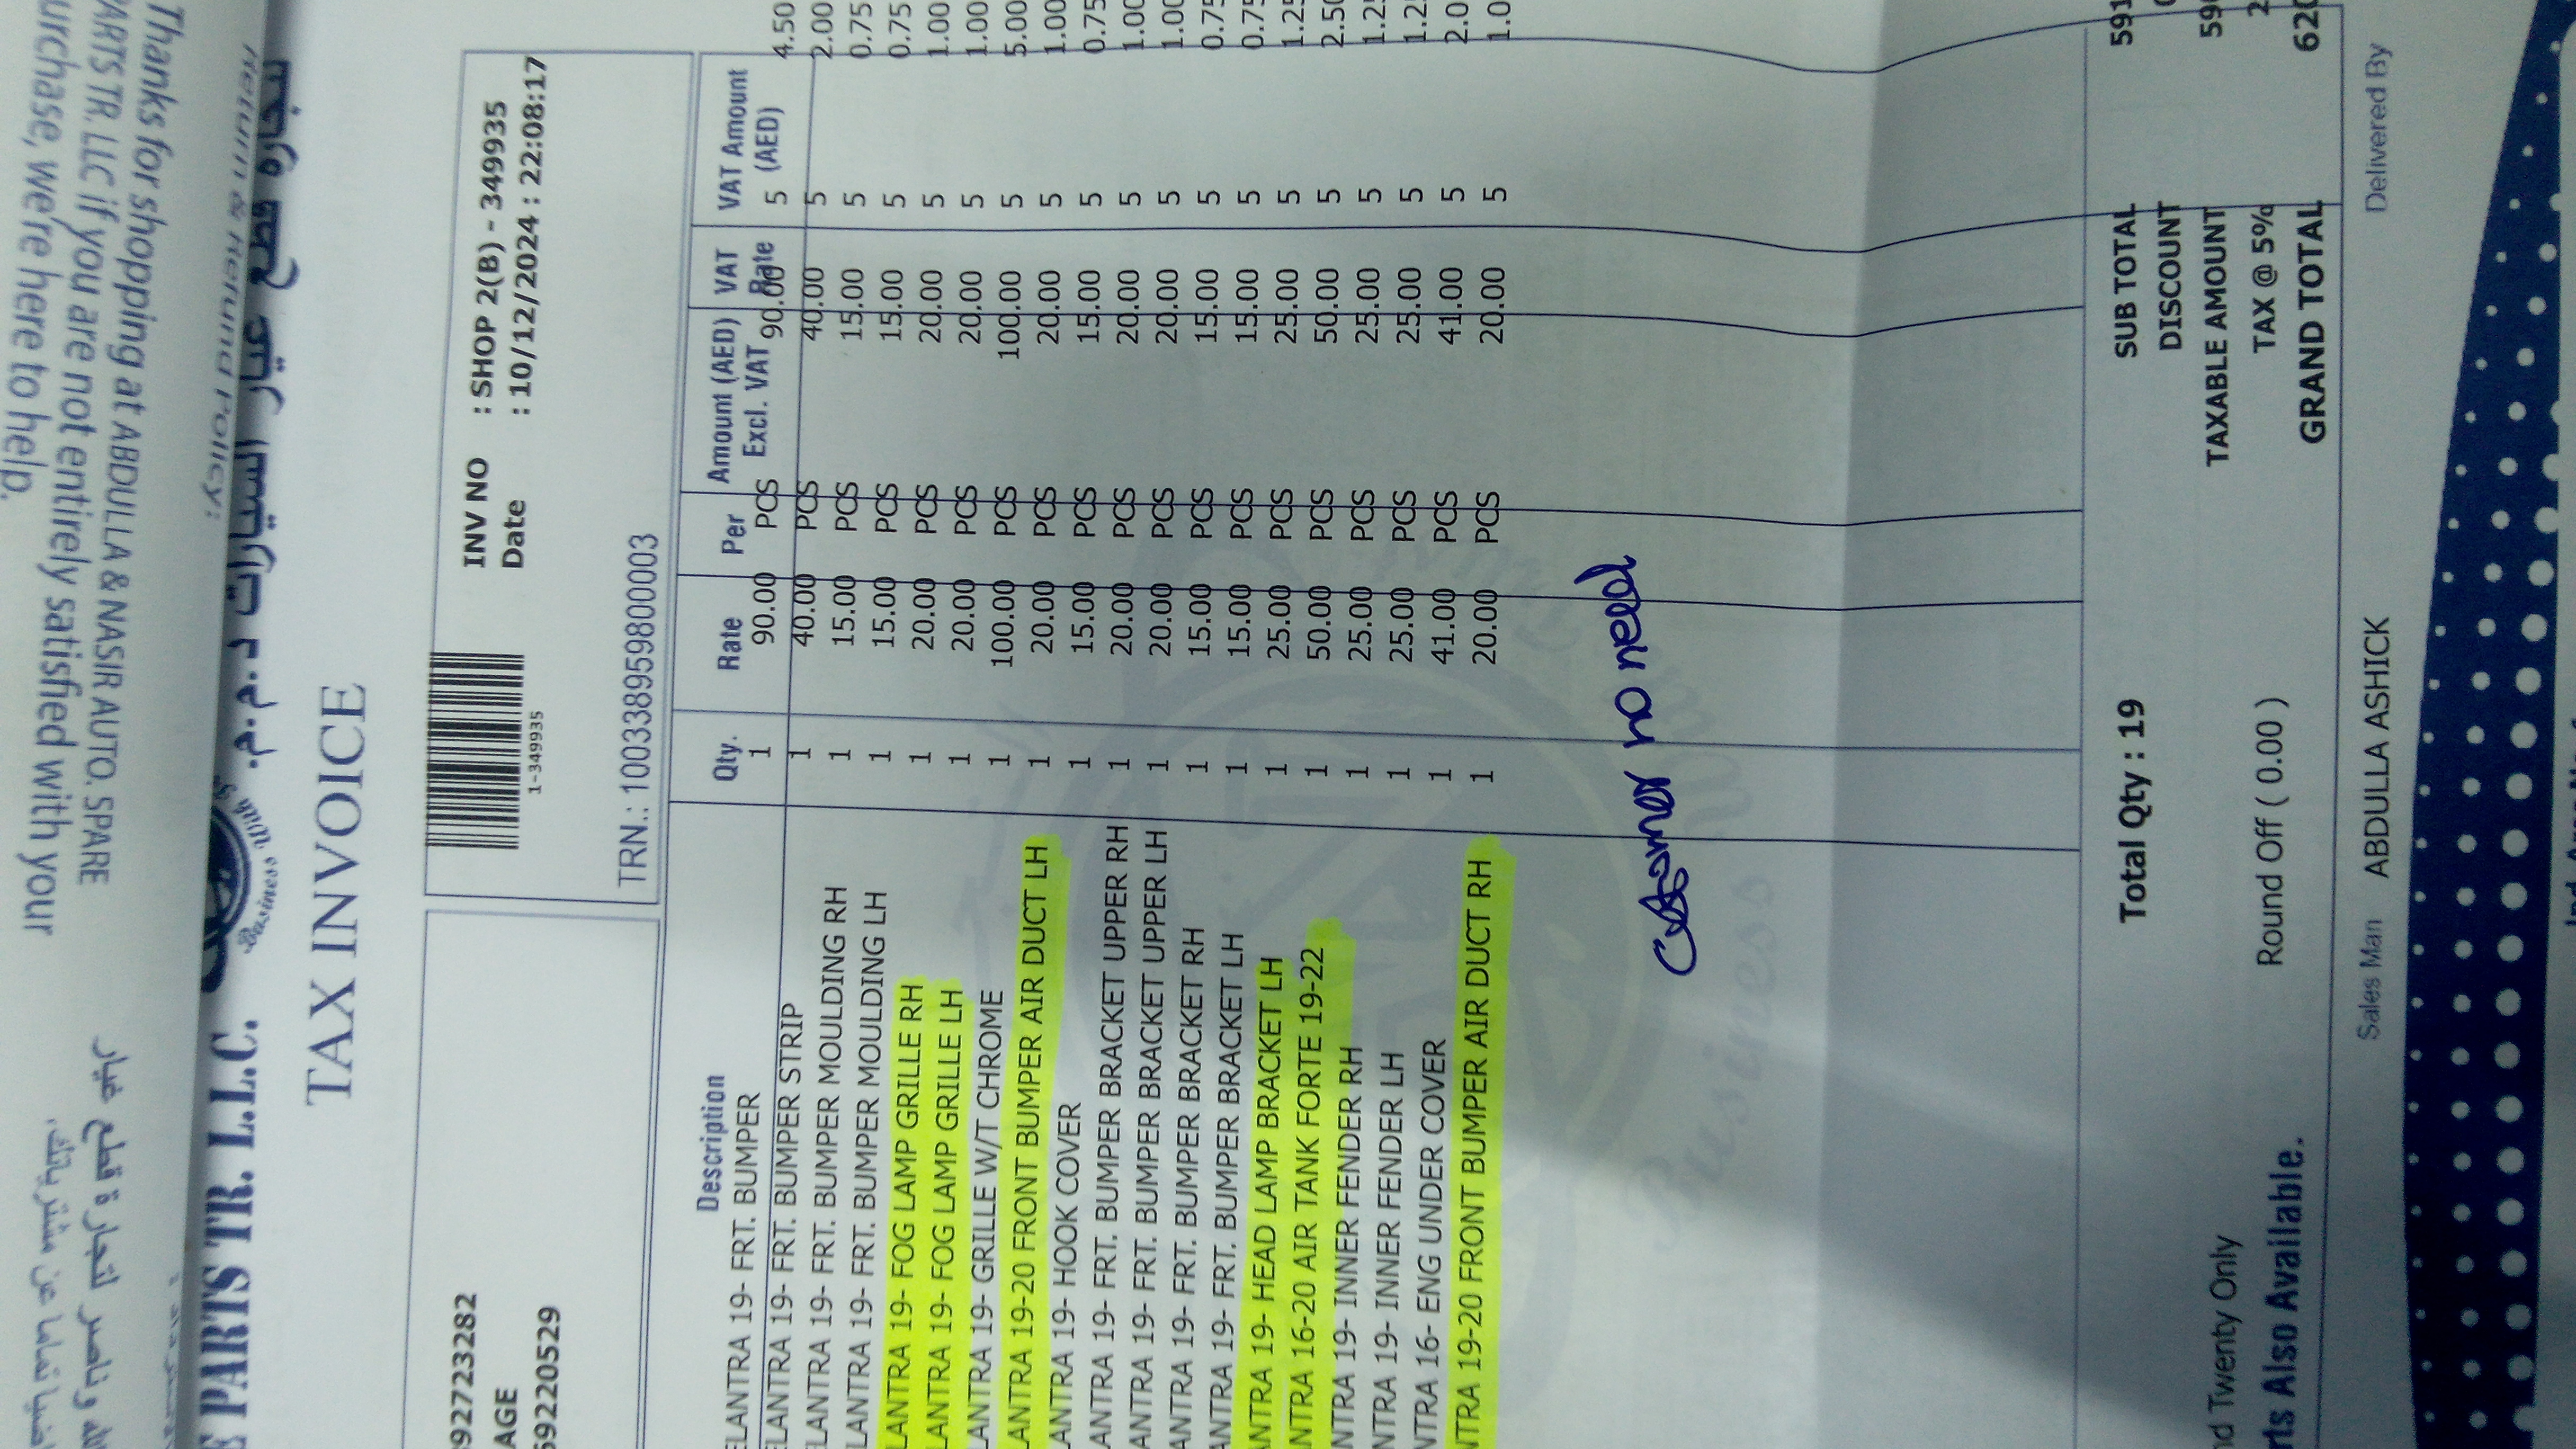 Return & Refund Policy:
Thanks for shopping at ABDULLA & NASIR AUTO. SPARE
PARTS TR. LLC if you are not entirely satisfied with your
purchase, we're here to help.
E PARTS TR. L.L.C.
Business With S
TAX INVOICE
092723282
AGE
5692205​29
1-349935
INV NO : SHOP 2(B) - 349935
Date : 10/12/2024 : 22:08:17
TRN.: 100338959800003
Description Qty. Rate Per Amount (AED) Excl. VAT VAT Rate VAT Amount (AED)
ELANTRA 19- FRT. BUMPER 1 90.00 PCS 90.00 5 4.50
ELANTRA 19- FRT. BUMPER STRIP 1 40.00 PCS 40.00 5 2.00
LANTRA 19- FRT. BUMPER MOULDING RH 1 15.00 PCS 15.00 5 0.75
LANTRA 19- FRT. BUMPER MOULDING LH 1 15.00 PCS 15.00 5 0.75
LANTRA 19- FOG LAMP GRILLE RH 1 20.00 PCS 20.00 5 1.00
LANTRA 19- FOG LAMP GRILLE LH 1 20.00 PCS 20.00 5 1.00
LANTRA 19- GRILLE W/T CHROME 1 100.00 PCS 100.00 5 5.00
LANTRA 19-20 FRONT BUMPER AIR DUCT LH 1 20.00 PCS 20.00 5 1.00
ANTRA 19- HOOK COVER 1 15.00 PCS 15.00 5 0.75
ANTRA 19- FRT. BUMPER BRACKET UPPER RH 1 20.00 PCS 20.00 5 1.00
ANTRA 19- FRT. BUMPER BRACKET UPPER LH 1 20.00 PCS 20.00 5 1.00
ANTRA 19- FRT. BUMPER BRACKET RH 1 15.00 PCS 15.00 5 0.75
ANTRA 19- FRT. BUMPER BRACKET LH 1 15.00 PCS 15.00 5 0.75
ANTRA 19- HEAD LAMP BRACKET LH 1 25.00 PCS 25.00 5 1.25
NTRA 16-20 AIR TANK FORTE 19-22 1 50.00 PCS 50.00 5 2.50
NTRA 19- INNER FENDER RH 1 25.00 PCS 25.00 5 1.25
NTRA 19- INNER FENDER LH 1 25.00 PCS 25.00 5 1.2
NTRA 16- ENG UNDER COVER 1 41.00 PCS 41.00 5 2.0
NTRA 19-20 FRONT BUMPER AIR DUCT RH 1 20.00 PCS 20.00 5 1.0
no need
Business
Total Qty : 19 SUB TOTAL 591
DISCOUNT
TAXABLE AMOUNT 59
nd Twenty Only Round Off ( 0.00 ) TAX @ 5% 2
rts Also Available. GRAND TOTAL 620
Sales Man ABDULLA ASHICK Delivered By